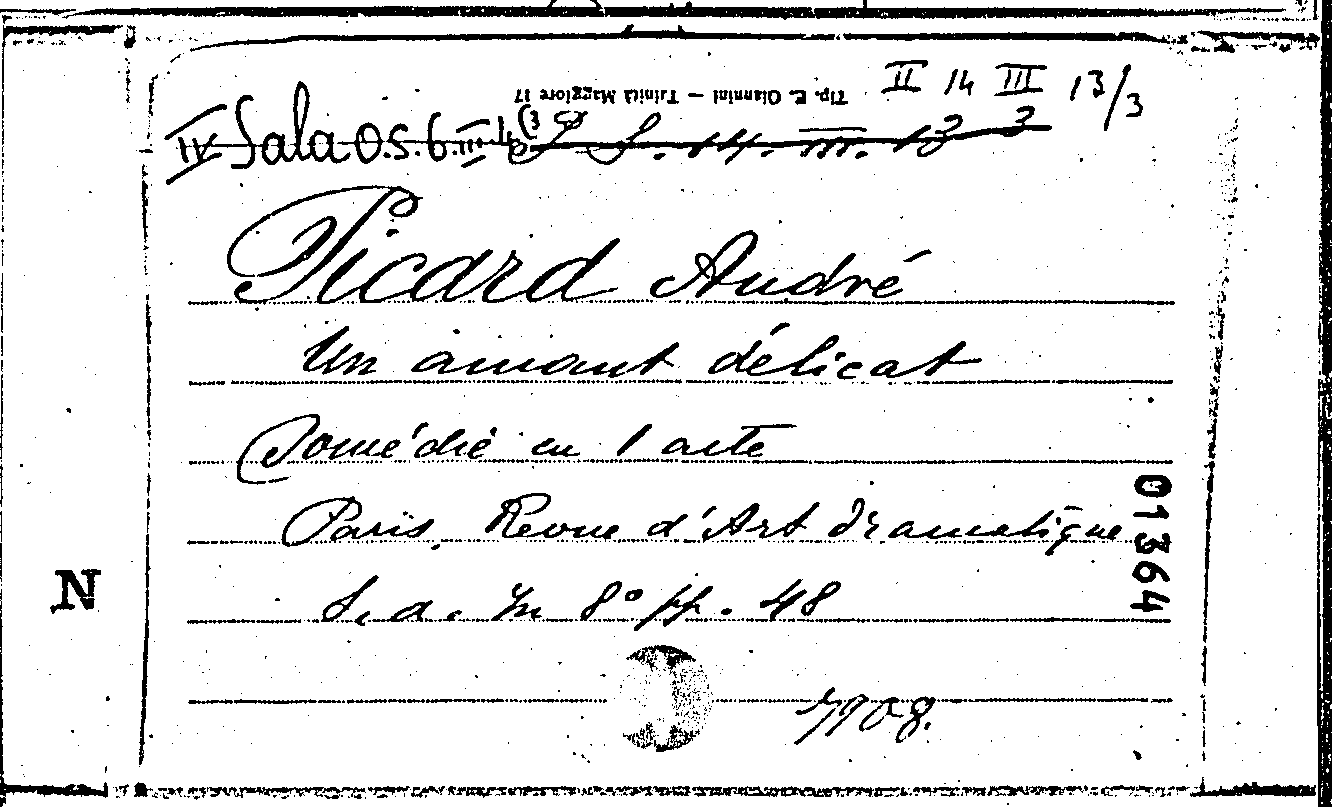 II 14 III 13/3
Tip. E. Giannini — Trinità Maggiore 17
IV Sala O.S. 6.III
S. 14. III. 13 3
Picard André
Un amant délicat
Comédie en 1 acte
Paris, Revue d'Art dramatique
S. d. In 8° pp. 48
01364
N
7908.